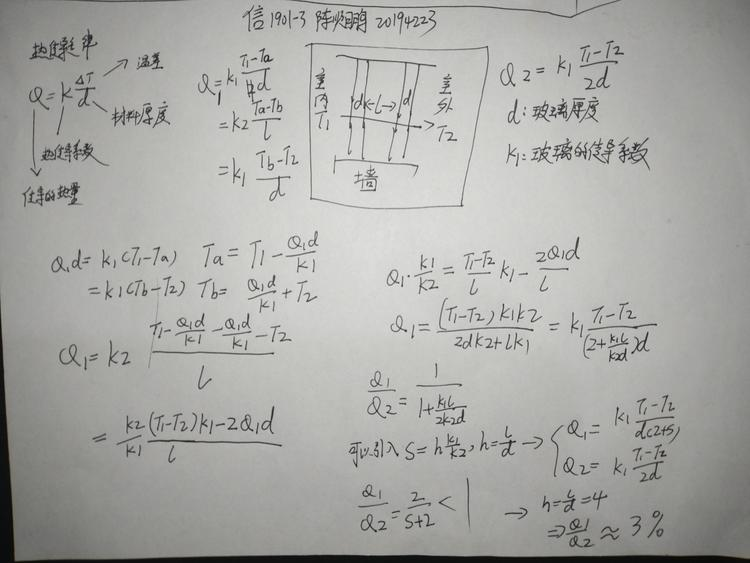 信1901-3 陈炳鹏 20194223
热传导率
Q = k ΔT/d
温差
材料厚度
热传导系数
传导的热量
Q₁ = k₁ (T₁-Ta)/d
= k₂ (Ta-Tb)/l
= k₁ (Tb-T₂)/d
室内 T₁
d ←l→ d
室外 T₂
墙
Q₂ = k₁ (T₁-T₂)/2d
d: 玻璃厚度
k₁: 玻璃的传导系数
Q₁d = k₁(T₁-Ta) Ta = T₁ - Q₁d/k₁
= k₁(Tb-T₂) Tb = Q₁d/k₁ + T₂
Q₁ = k₂ (T₁ - Q₁d/k₁ - Q₁d/k₁ - T₂)/l
= k₂/k₁ ((T₁-T₂)k₁ - 2Q₁d)/l
Q₁ · k₁/k₂ = (T₁-T₂)/l k₁ - 2Q₁d/l
Q₁ = (T₁-T₂)k₁k₂/(2dk₂+lk₁) = k₁ (T₁-T₂)/((2+k₁l/k₂d)d)
Q₁/Q₂ = 1/(1+k₁l/2k₂d)
可以引入 S = h k₁/k₂, h = l/d → { Q₁ = k₁ (T₁-T₂)/d(2+S)
Q₂ = k₁ (T₁-T₂)/2d
Q₁/Q₂ = 2/(S+2) < 1
→ h = l/d = 4
⇒ Q₁/Q₂ ≈ 3%